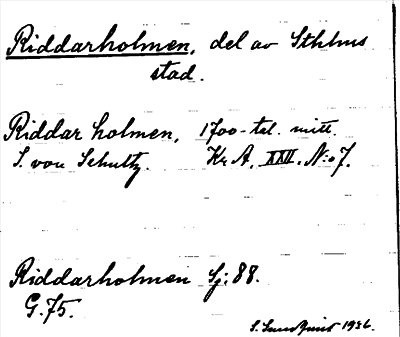 Riddarholmen, del av Sthlms
stad.
Riddarholmen, 1700-tal. mitt.
S. von Schultz. Kr. A. XXII. N:o 7.
Riddarholmen Sj: 88.
G. 75.
S. Sundquist 1936.